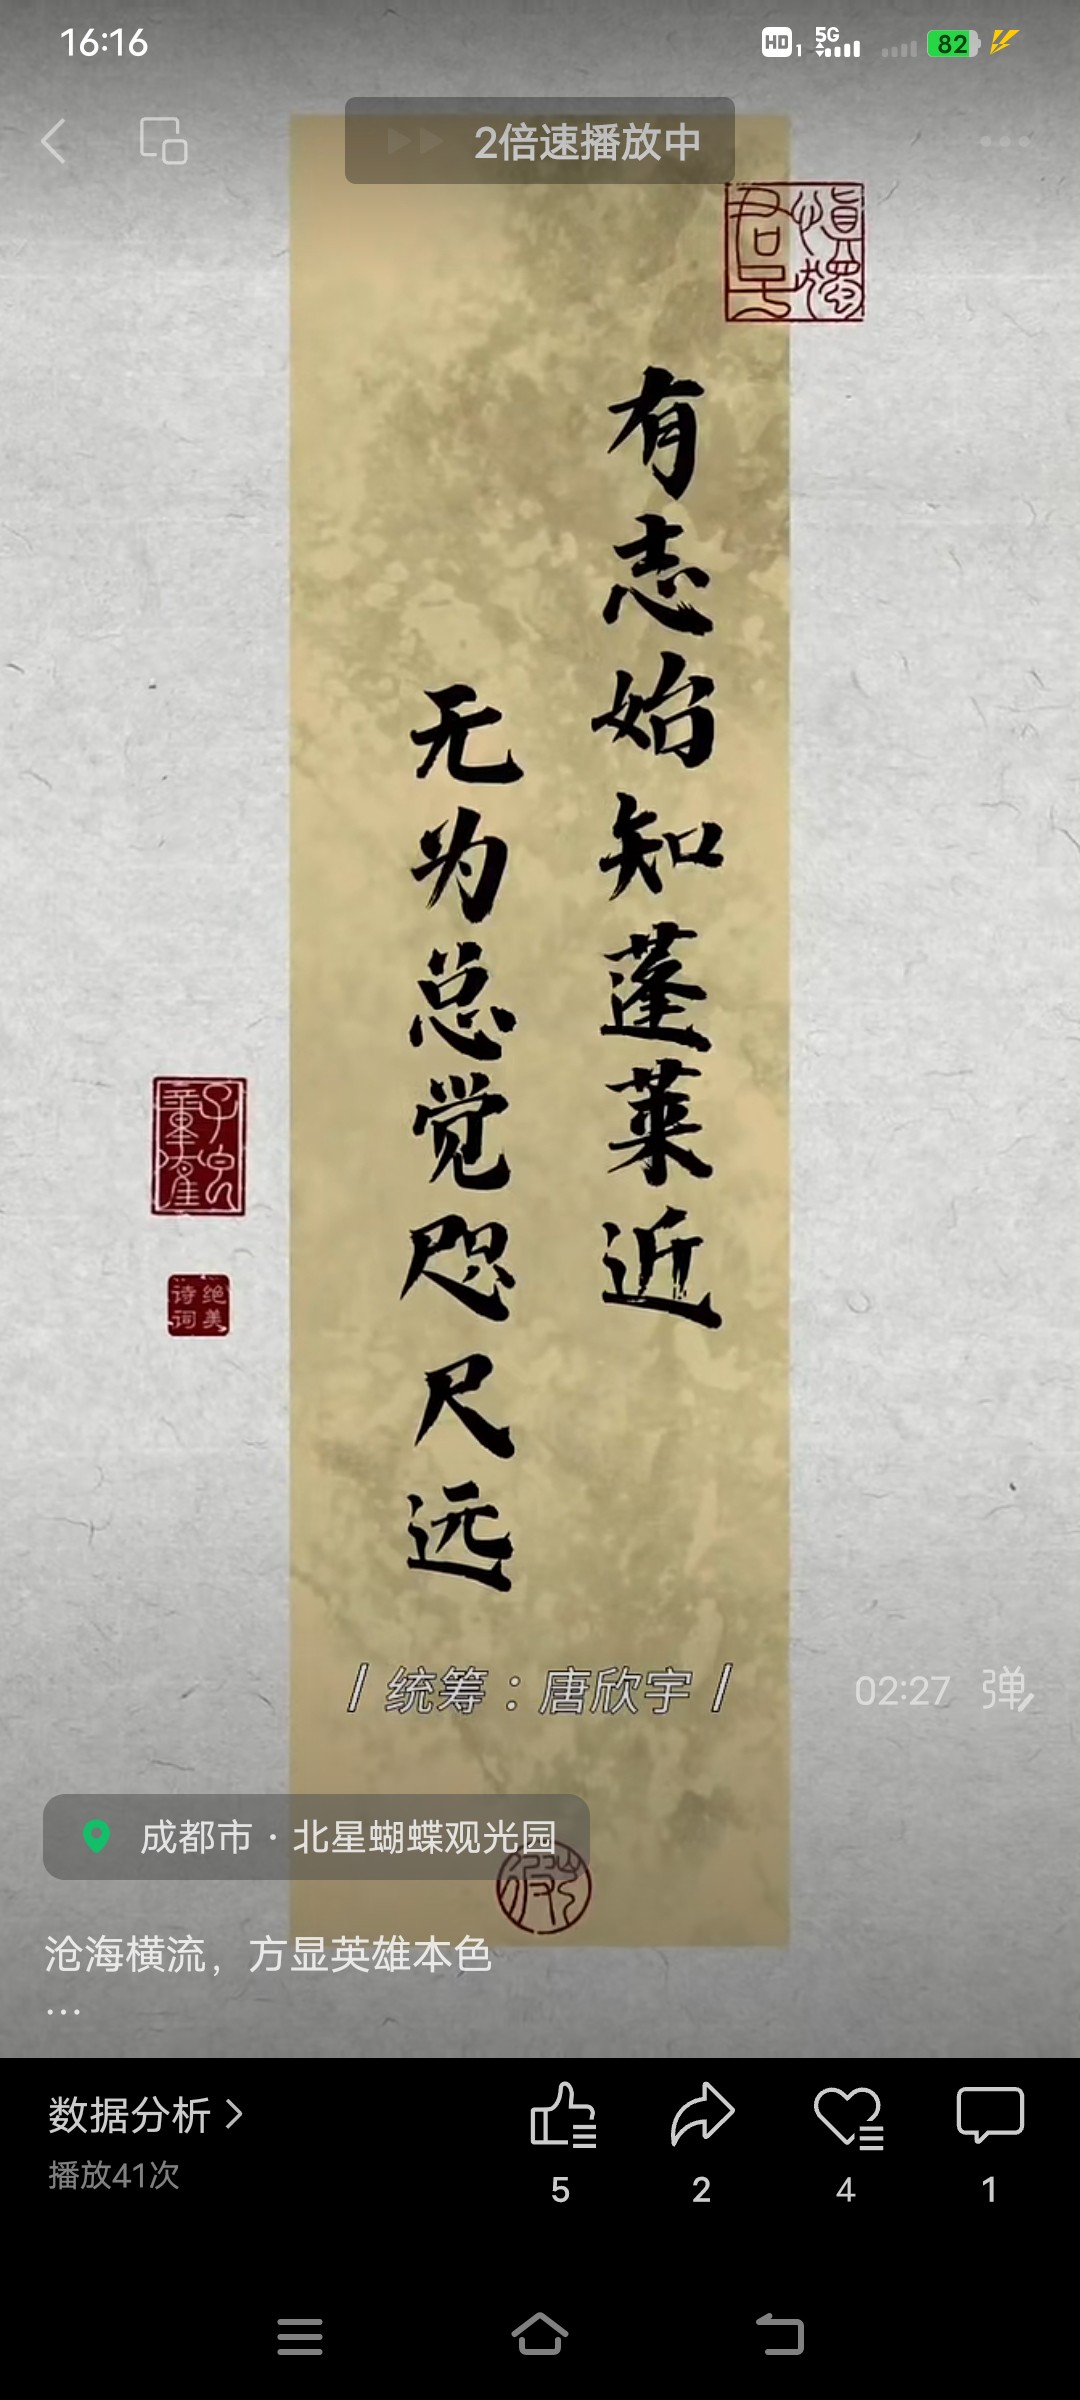 16:16
HD 1 5G 82
2倍速播放中
慎獨
君子
有志始知蓬莱近
无为总觉咫尺远
绝美
诗词
/ 统筹：唐欣宇 /
02:27 弹
成都市 · 北星蝴蝶观光园
沧海横流，方显英雄本色
...
数据分析
播放41次
5 2 4 1